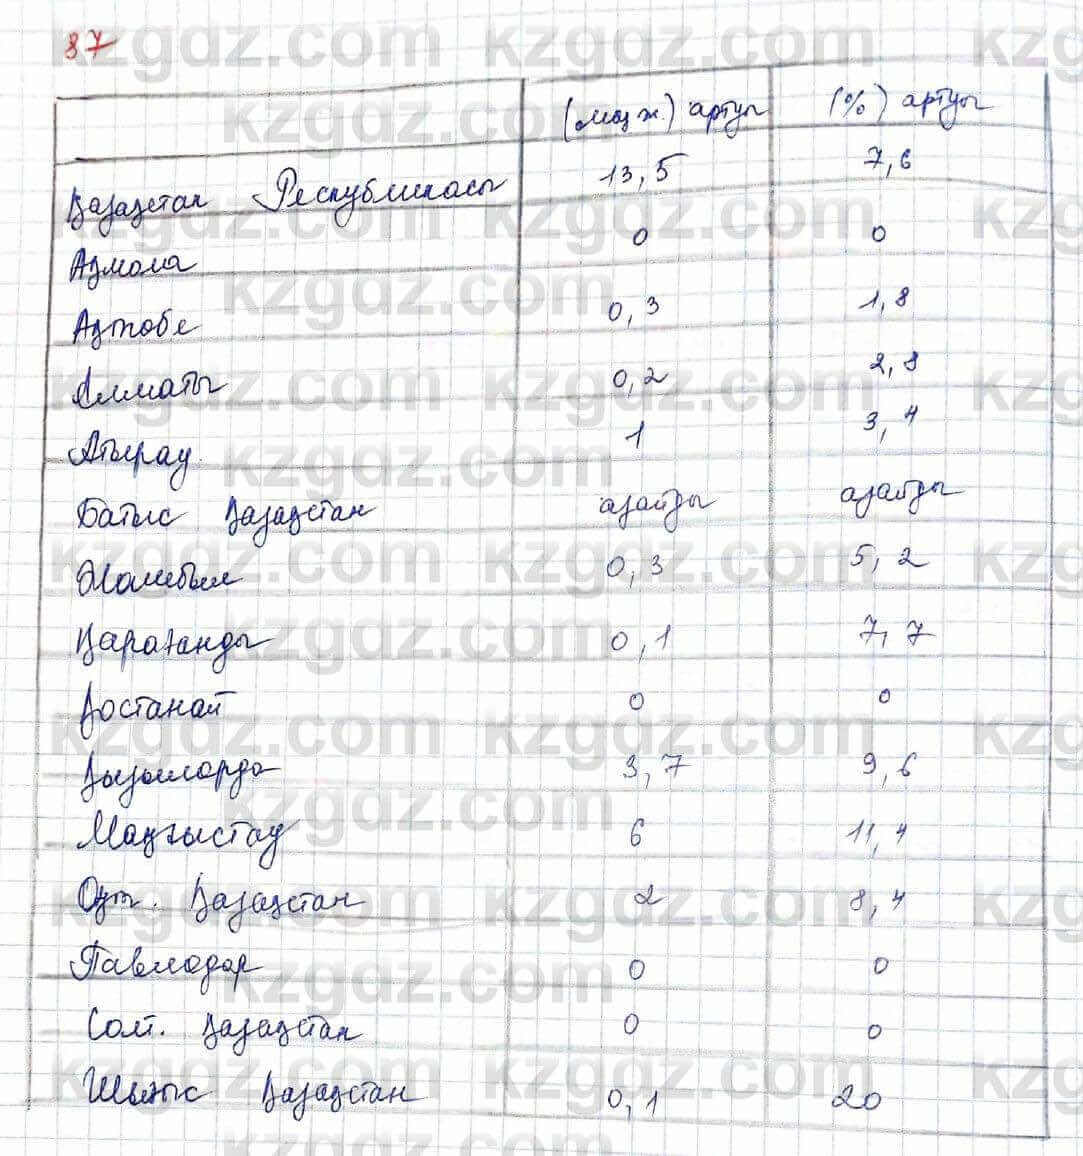 87
(мың ж.) артуы (%) артуы
Қазақстан Республикасы 13,5 7,6
Ақмола 0 0
Ақтөбе 0,3 1,8
Алматы 0,2 2,8
Атырау 1 3,4
Батыс Қазақстан азайды азайды
Жамбыл 0,3 5,2
Қарағанды 0,1 7,7
Қостанай 0 0
Қызылорда 3,7 9,6
Маңғыстау 6 11,4
Оңт. Қазақстан 2 8,4
Павлодар 0 0
Солт. Қазақстан 0 0
Шығыс Қазақстан 0,1 20
kzgdz.com